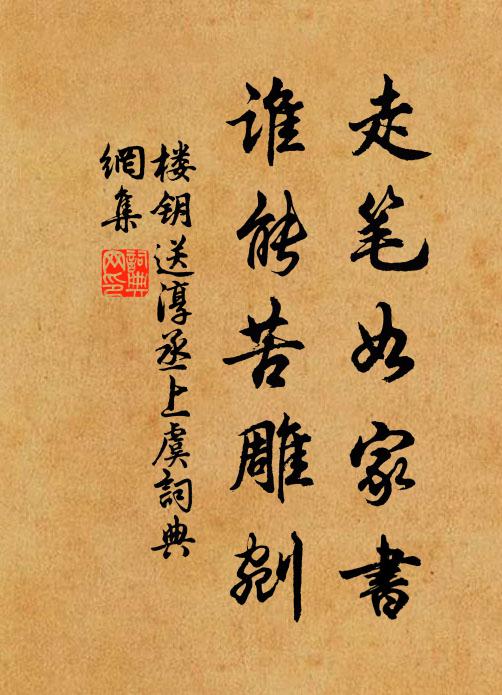 走笔如家書
谁能苦雕剜
楼钥送淳丞上虞詞典
網集
詞典
网印